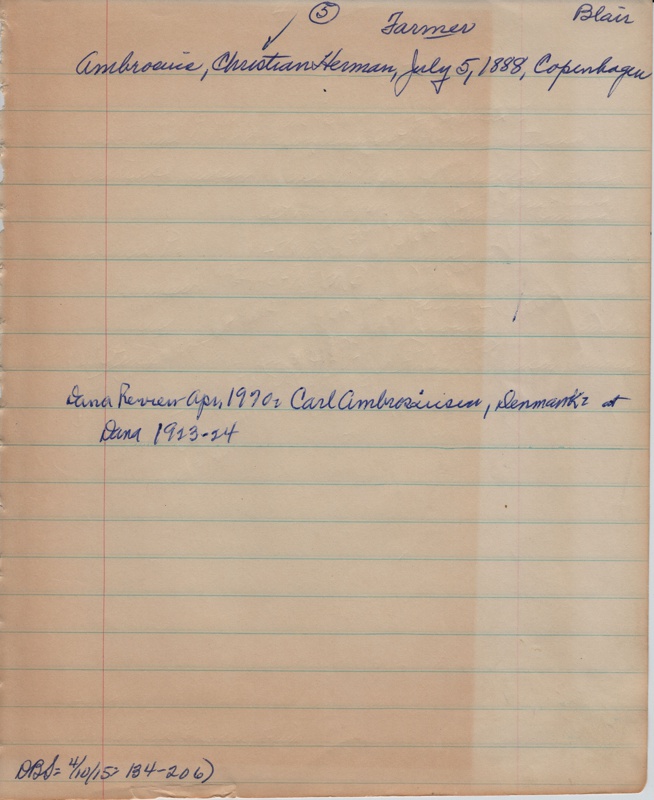 5 Farmer Blair
Ambrosius, Christian Herman, July 5, 1888, Copenhagen
Dana Review Apr, 1970: Carl Ambrosiusen, Denmark: at
Dana 1923-24
DBS= 4/10/15= 134-206)